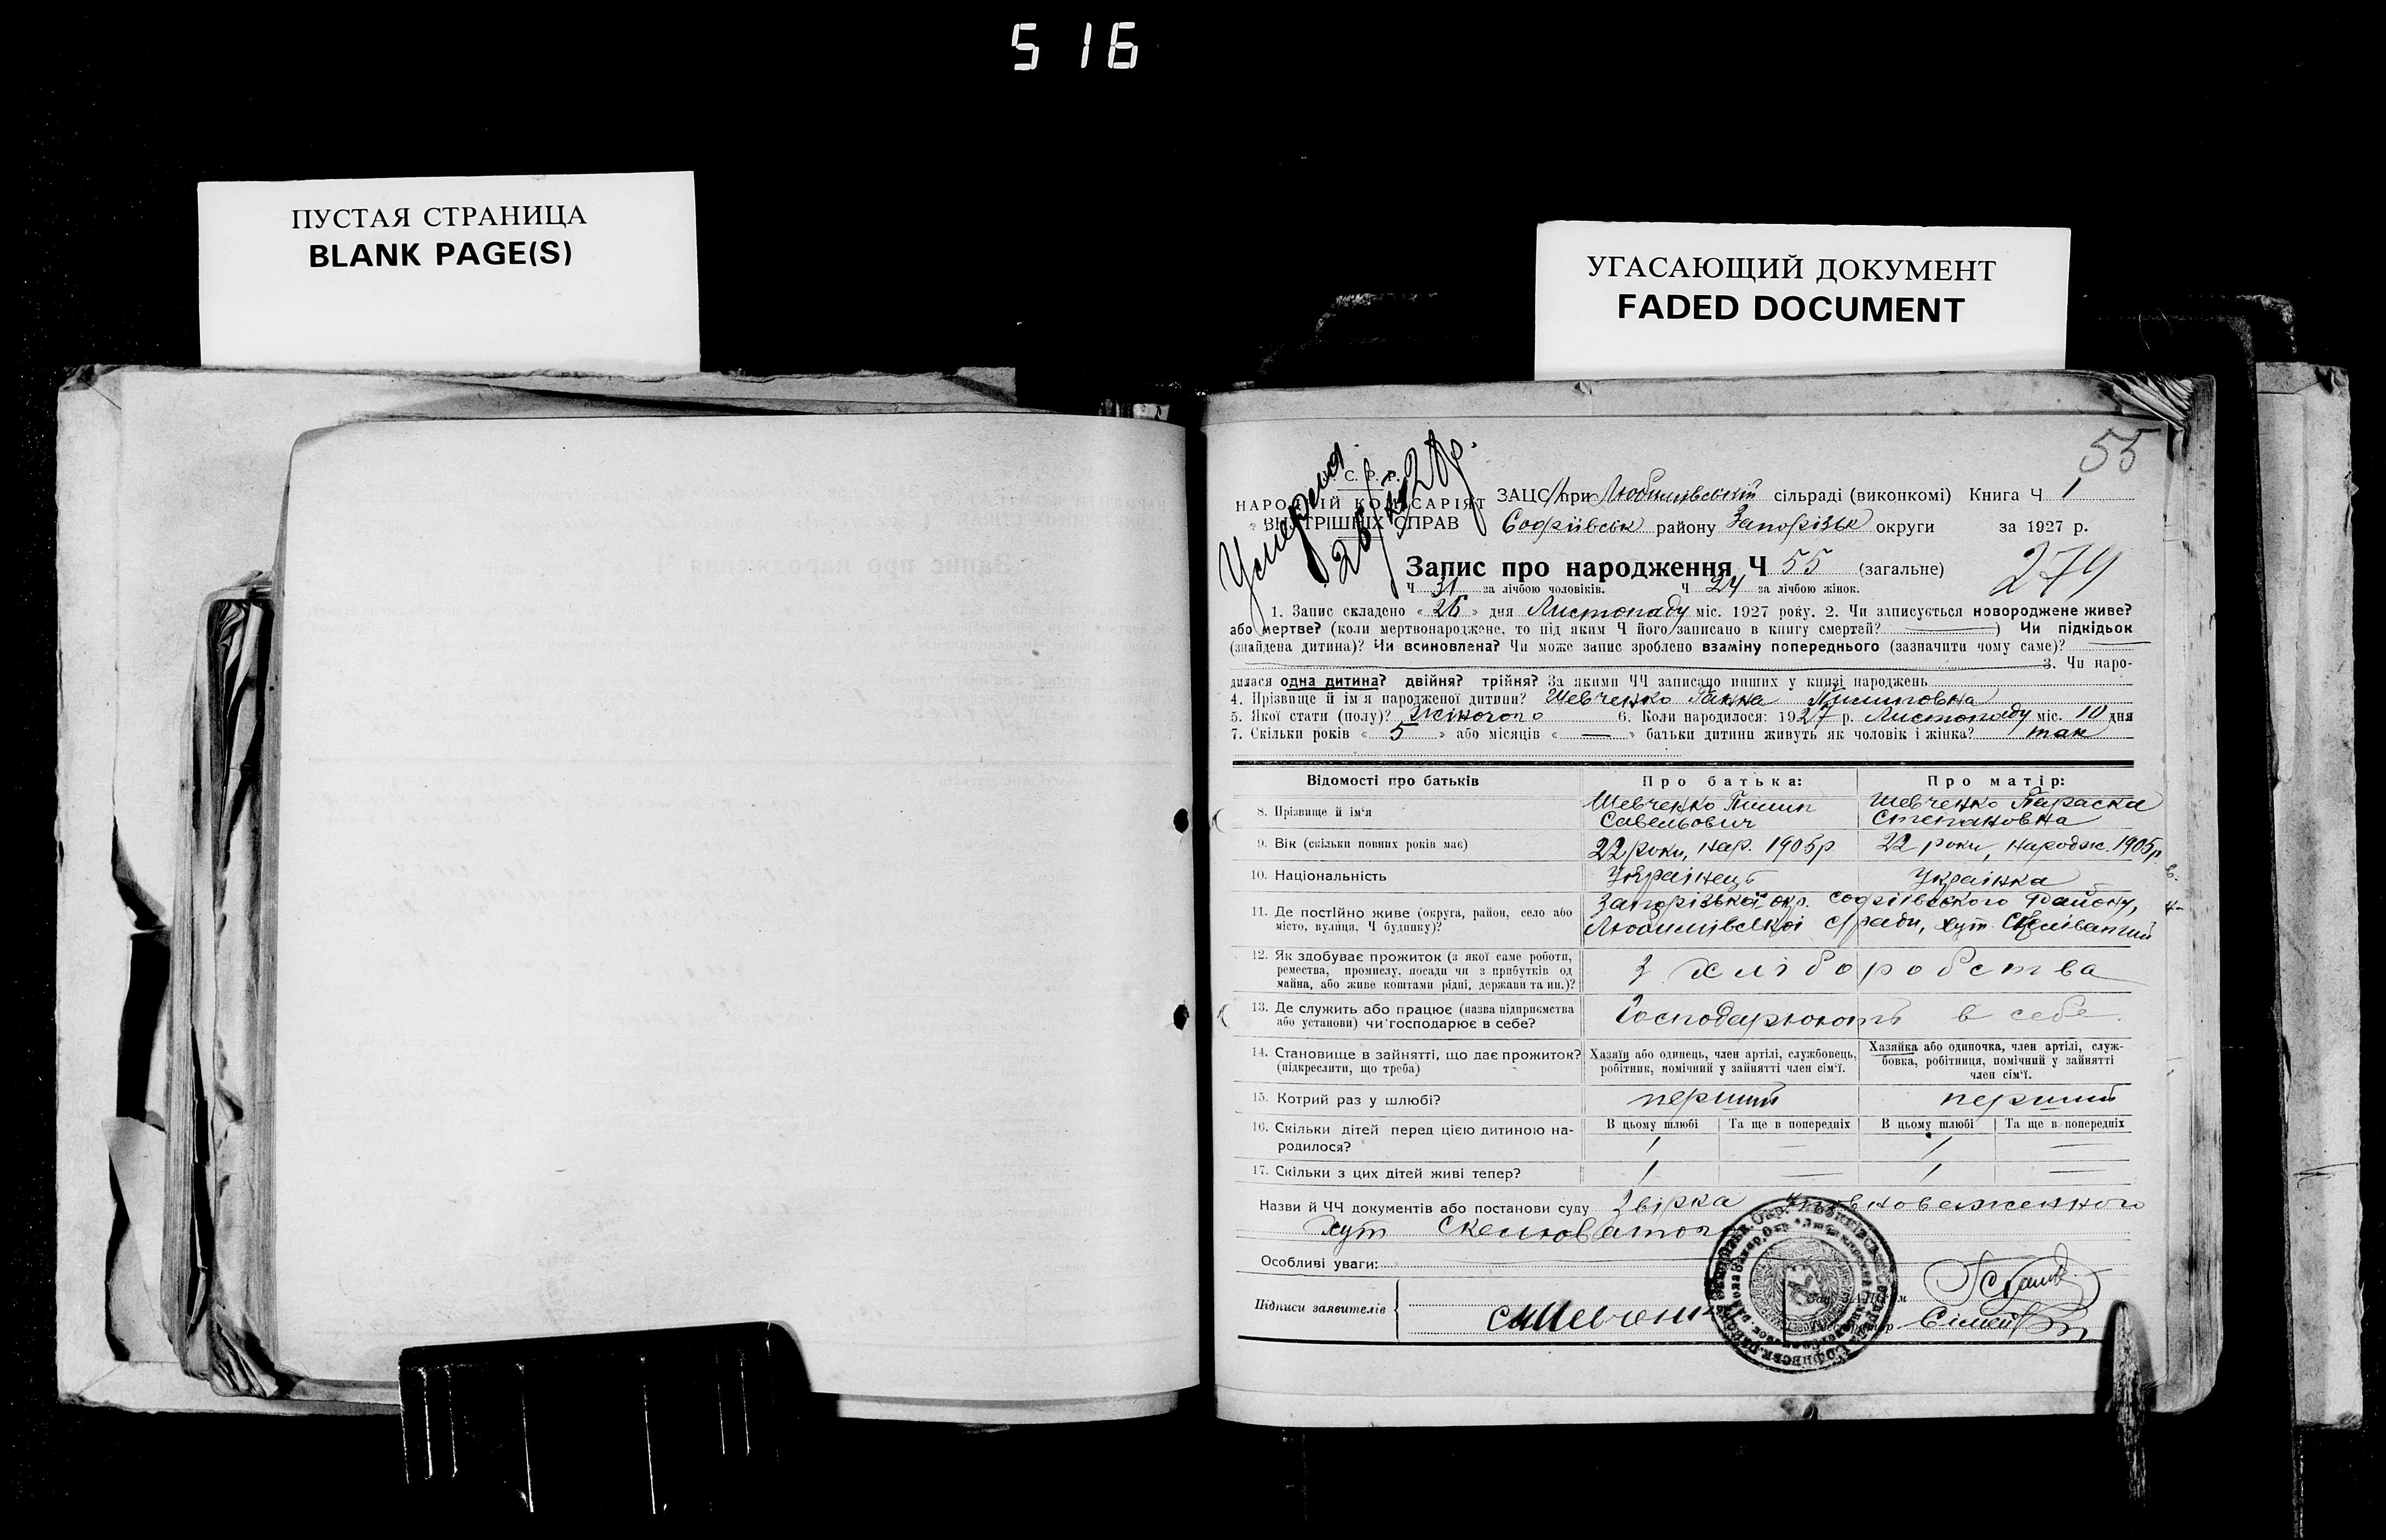 5 16
ПУСТАЯ СТРАНИЦА
BLANK PAGE(S)
УГАСАЮЩИЙ ДОКУМЕНТ
FADED DOCUMENT
55
Умерла
С. Р. Р.
НАРОДНІЙ КОМІСАРІЯТ
ВНУТРІШНІХ СПРАВ
ЗАЦС при Любимівській сільраді (виконкомі) Книга Ч 1
Софіївськ району Запорізьк округи за 1927 р.
Запис про народження Ч 55 (загальне)
279
Ч 31 за лічбою чоловіків. Ч 24 за лічбою жінок.
1. Запис складено « 26 » дня Листопаду міс. 1927 року. 2. Чи записується новороджене живе?
або мертве? (коли мертвонароджене, то під яким Ч його записано в книгу смертей? —) Чи підкідьок
(знайдена дитина)? Чи всиновлена? Чи може запис зроблено взаміну попереднього (зазначити чому саме)?
3. Чи наро-
дилася одна дитина? двійня? трійня? За якими ЧЧ записано инших у книзі народжень
4. Прізвище й ім'я народженої дитини? Шевченко Ганна Пилиповна
5. Якої стати (полу)? Жіночого 6. Коли народилося: 1927 р. Листопаду міс. 10 дня
7. Скільки років « 5 » або місяців « — » батьки дитини живуть як чоловік і жінка? так
Відомості про батьків Про батька: Про матір:
8. Прізвище й ім'я Шевченко Пилип Шевченко Параска
Савельович Степановна
9. Вік (скільки повних років має) 22 роки, нар. 1905р 22 роки, народж. 1905р.
10. Національність Українець Українка
11. Де постійно живе (округа, район, село або Запорізької окр. Софіівського Району,
місто, вулиця, Ч будинку)? Любимівської с/ради, хут.
12. Як здобуває прожиток (з якої саме роботи,
ремества, промислу, посади чи з прибутків од
майна, або живе коштами рідні, держави та ин.)? З хліборобства
13. Де служить або працює (назва підприємства
або установи) чи господарює в себе? Господарюють в себе.
14. Становище в зайнятті, що дає прожиток? Хазяїн або одинець, член артілі, службовець, Хазяйка або одиночка, член артілі, служ-
(підкреслити, що треба) робітник, помічний у зайнятті член сім'ї. бовка, робітниця, помічний у зайнятті
член сім'ї.
15. Котрий раз у шлюбі? перший перший
16. Скільки дітей перед цією дитиною на- В цьому шлюбі Та ще в попередніх В цьому шлюбі Та ще в попередніх
родилося? 1 — 1 —
17. Скільки з цих дітей живі тепер? 1 — 1 —
Назви й ЧЧ документів або постанови суду Звірка Уповноваженного
хут Скелюватого
Особливі уваги:
Підписи заявителів